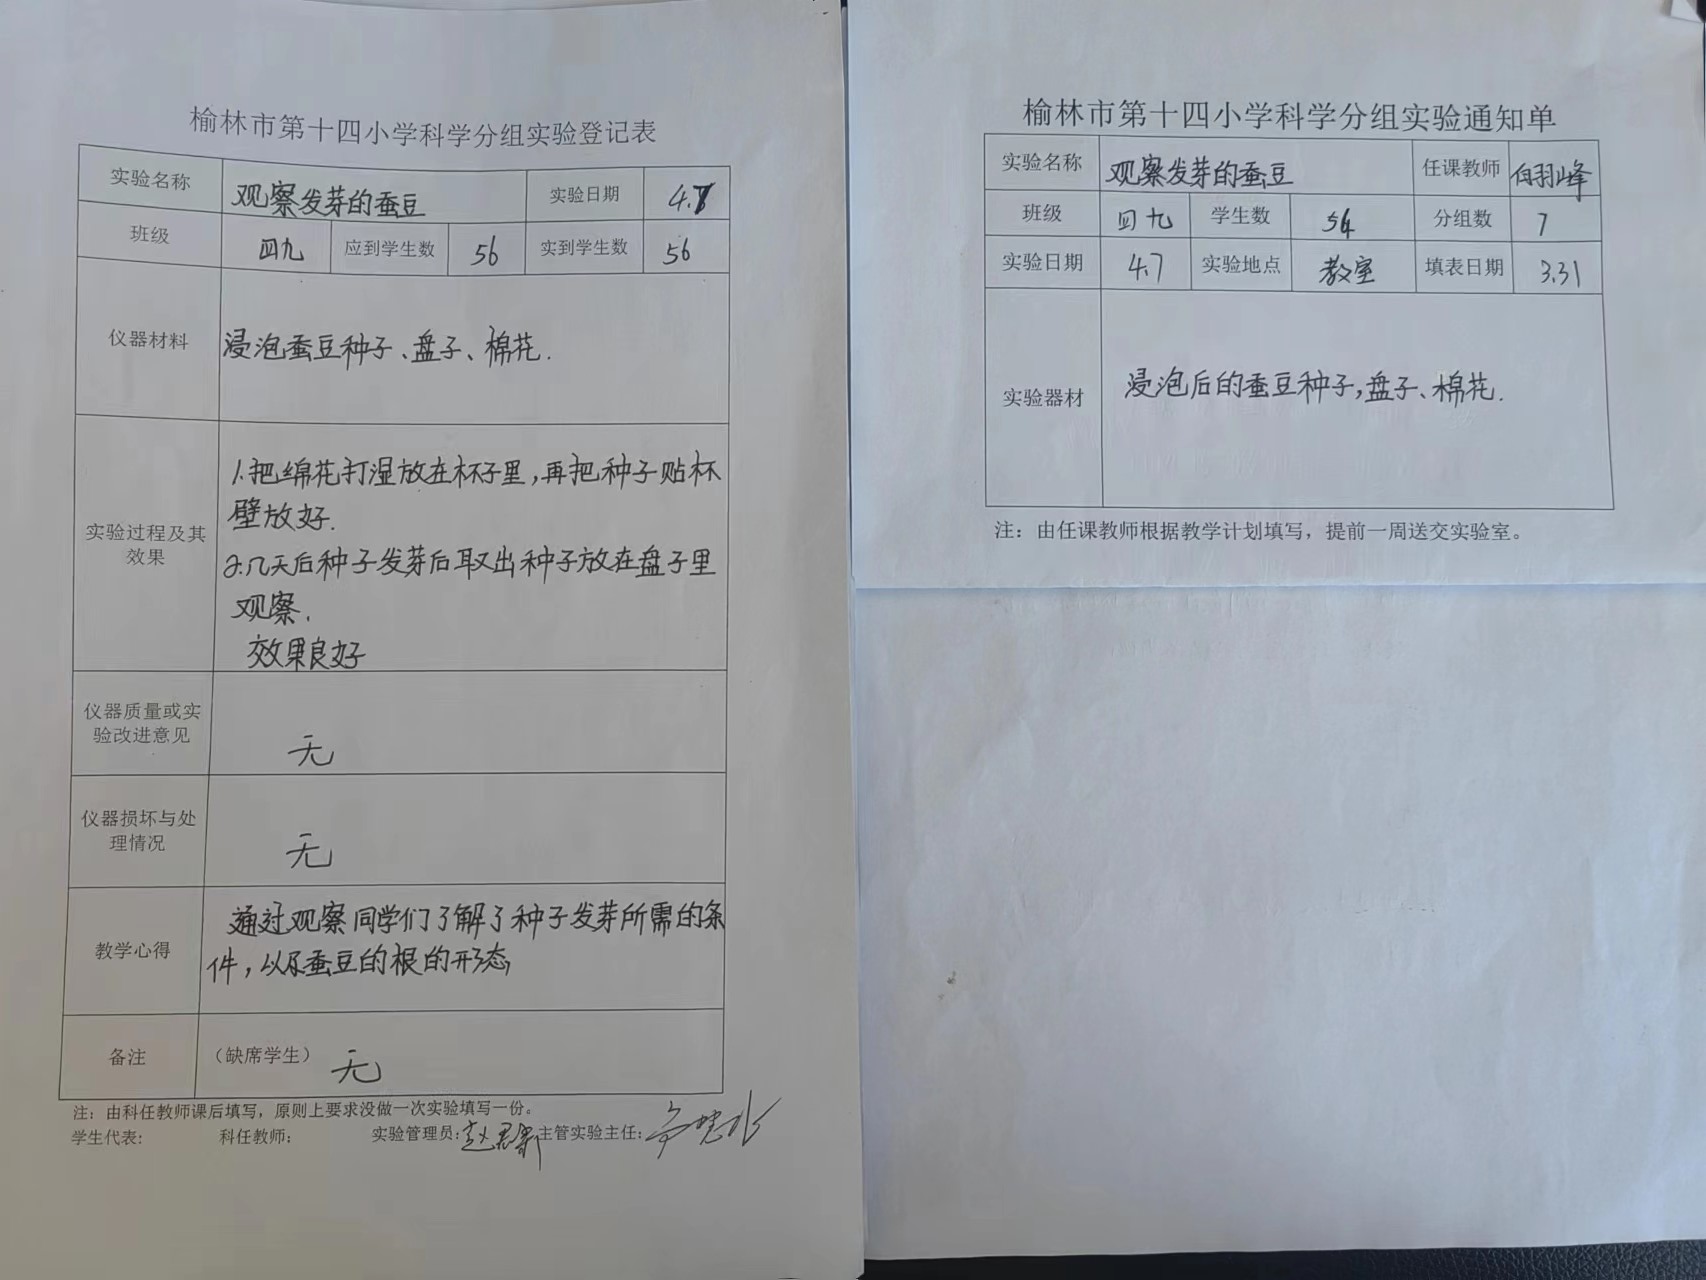 榆林市第十四小学科学分组实验登记表
实验名称 观察发芽的蚕豆 实验日期 4.7
班级 四九 应到学生数 56 实到学生数 56
仪器材料 浸泡蚕豆种子、盘子、棉花.
1.把绵花打湿放在杯子里,再把种子贴杯
壁放好.
实验过程及其
效果
2.几天后种子发芽后取出种子放在盘子里
观察.
效果良好
仪器质量或实
验改进意见
无
仪器损坏与处
理情况
无
教学心得
通过观察同学们了解了种子发芽所需的条
件,以及蚕豆的根的形态
备注 (缺席学生) 无
注:由科任教师课后填写,原则上要求没做一次实验填写一份。
学生代表: 科任教师: 实验管理员: 主管实验主任:
榆林市第十四小学科学分组实验通知单
实验名称 观察发芽的蚕豆 任课教师 白羽峰
班级 四九 学生数 56 分组数 7
实验日期 4.7 实验地点 教室 填表日期 3.31
实验器材 浸泡后的蚕豆种子,盘子、棉花.
注:由任课教师根据教学计划填写,提前一周送交实验室。